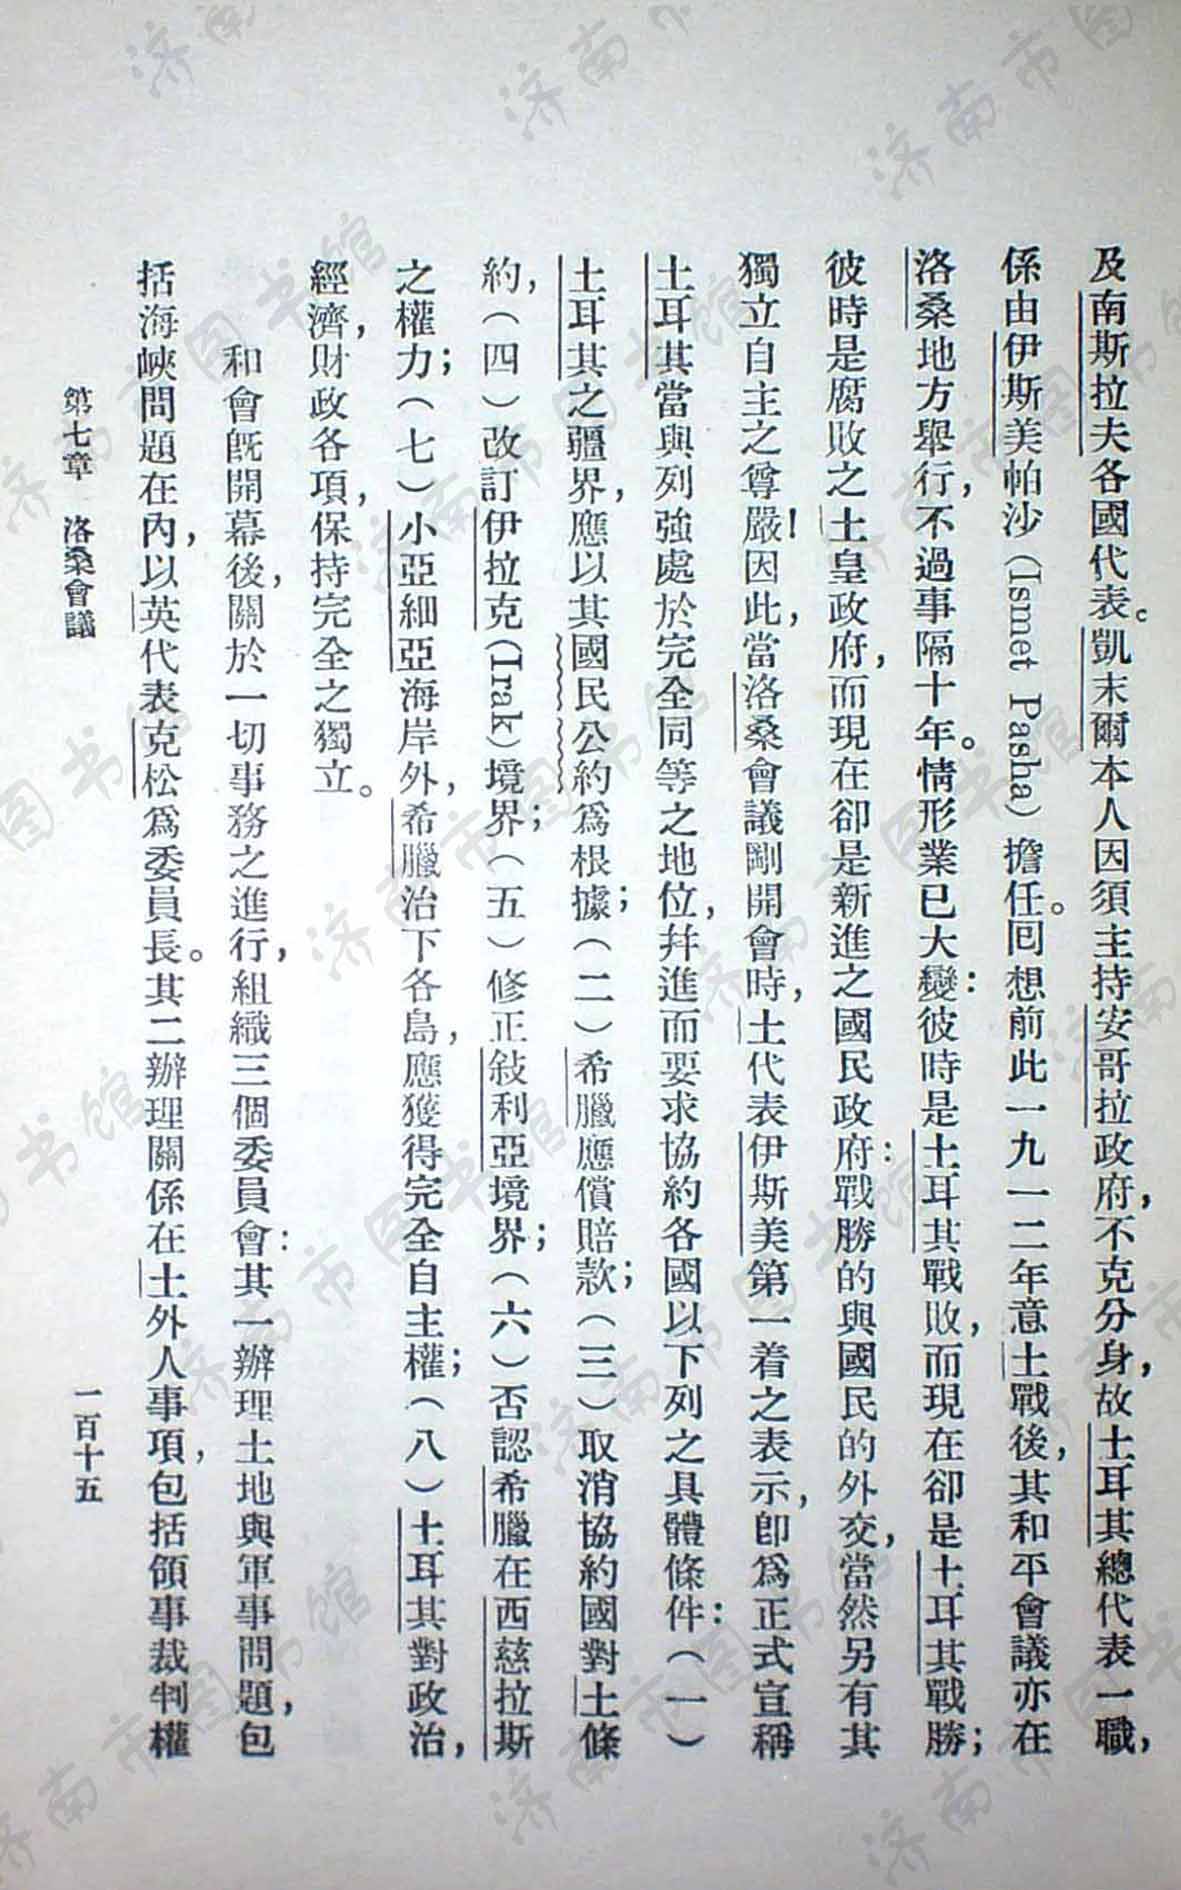 及南斯拉夫各國代表。凱末爾本人因須主持安哥拉政府，不克分身，故土耳其總代表一職，
係由伊斯美帕沙（Ismet Pasha）擔任。回想前此一九一二年意土戰後，其和平會議亦在
洛桑地方舉行，不過事隔十年。情形業已大變：彼時是土耳其戰敗，而現在卻是土耳其戰勝；
彼時是腐敗之土皇政府，而現在卻是新進之國民政府：戰勝的與國民的外交，當然另有其
獨立自主之尊嚴！因此，當洛桑會議剛開會時，土代表伊斯美第一着之表示，卽爲正式宣稱
土耳其當與列強處於完全同等之地位，幷進而要求協約各國以下列之具體條件：（一）
土耳其之疆界，應以其國民公約爲根據；（二）希臘應償賠款；（三）取消協約國對土條
約，（四）改訂伊拉克（Irak）境界；（五）修正敍利亞境界；（六）否認希臘在西慈拉斯
之權力；（七）小亞細亞海岸外，希臘治下各島，應獲得完全自主權；（八）土耳其對政治，
經濟，財政各項，保持完全之獨立。
和會旣開幕後，關於一切事務之進行，組織三個委員會：其一辦理土地與軍事問題，包
括海峽問題在內，以英代表克松爲委員長。其二辦理關係在土外人事項，包括領事裁判權
第七章 洛桑會議
一百十五
济南市图书馆